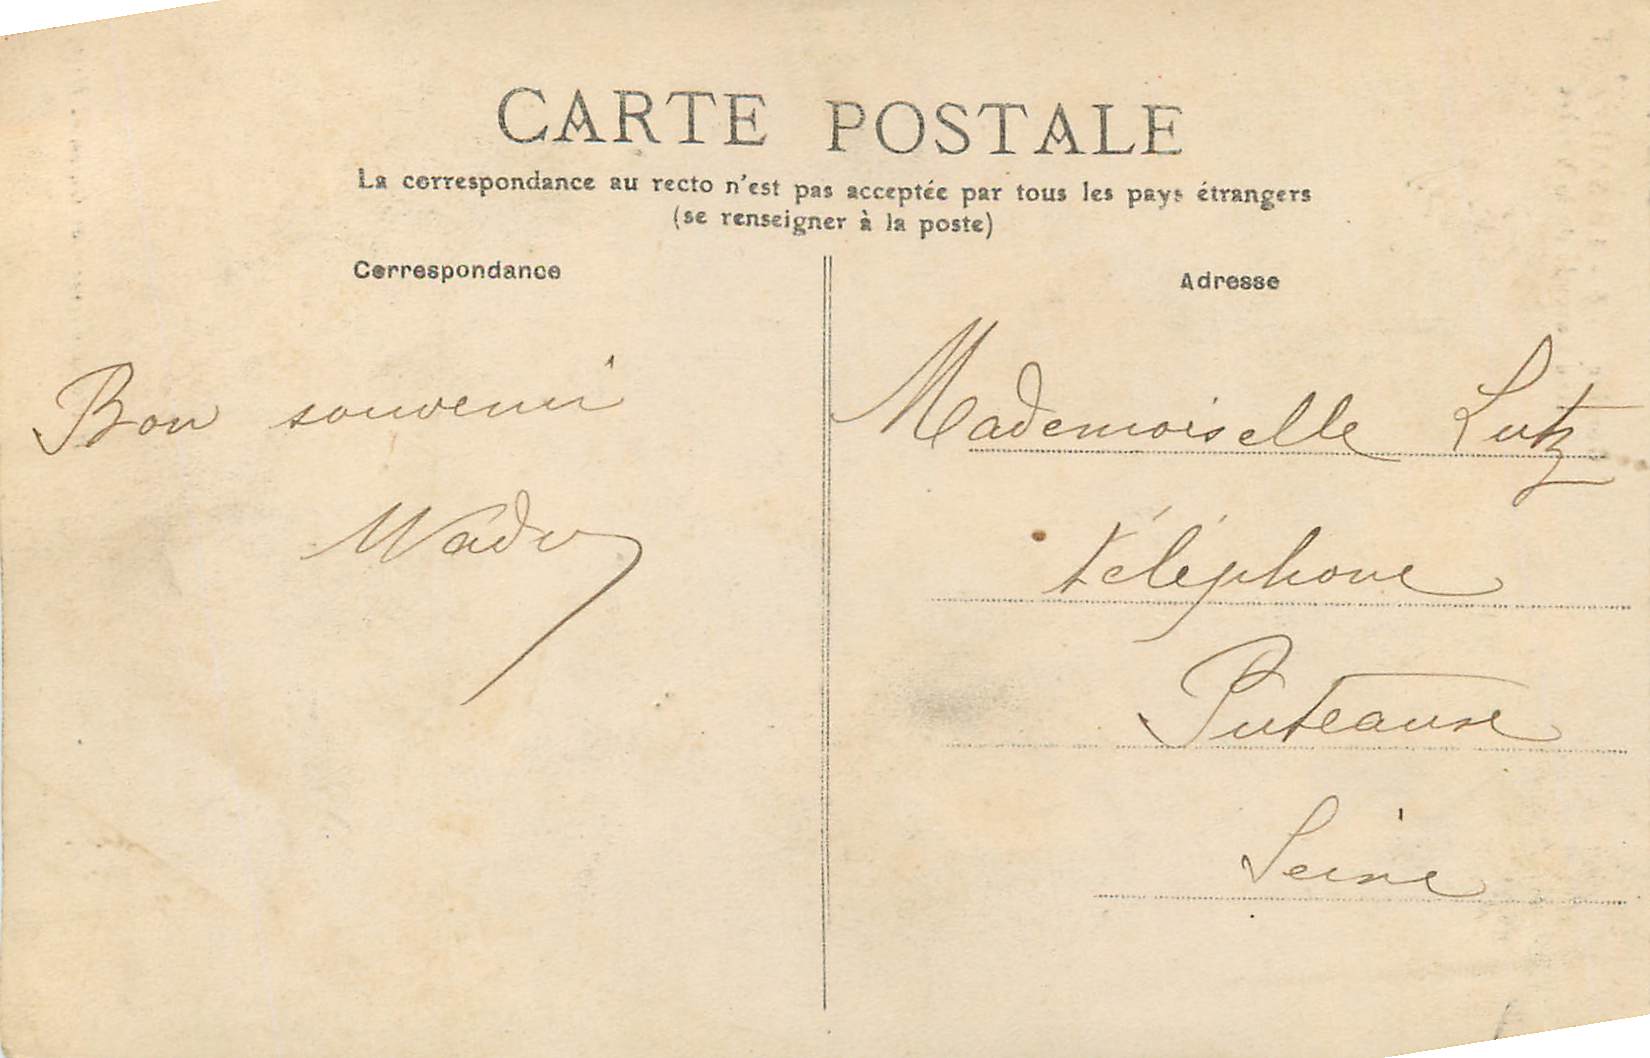 CARTE POSTALE
La correspondance au recto n'est pas acceptée par tous les pays étrangers
(se renseigner à la poste)
Correspondance
Bon souvenir
Adresse
Mademoiselle Lutz
téléphone
Puteaux
Seine